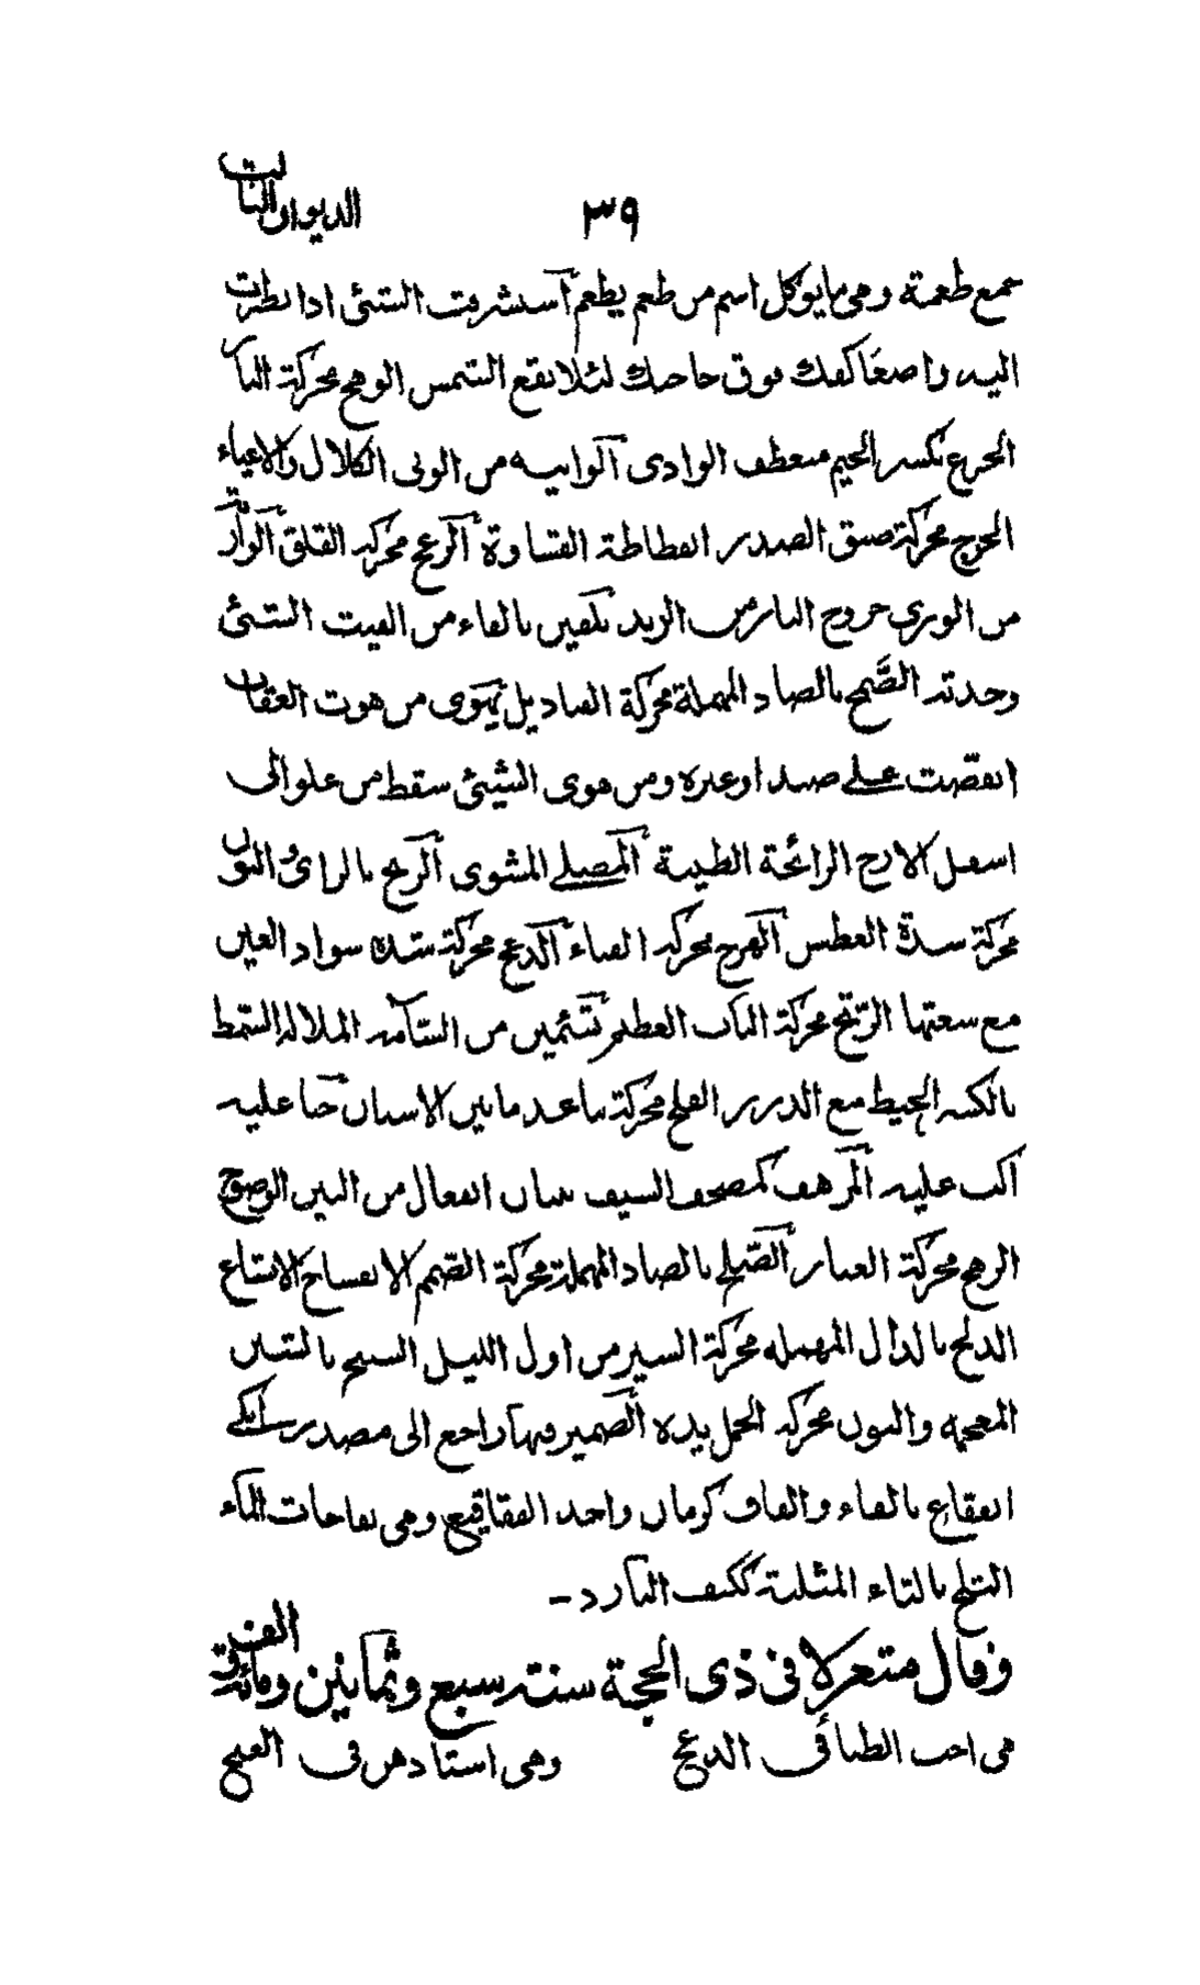 ٣٩ الديوان الثالث
جمع طعمة وهى مايوكل اسم من طعم يطعم آستشرفت الشئى اذا نظرت
اليه واضعا كفك فوق حاجبك لئلا تقع الشمس الوهج محركة النار
الجزع بكسر الجيم منعطف الوادى آلوانيه من الونى الكلال والاعياء
الحرج محركة ضيق الصدر الفظاظة القساوة آلزعج محركه القلق آلوارية
من الورى خروج النار من الزند تكفين بالفاء من الفيت الشئى
وجدته الصَّمج بالصاد المهملة محركة القناديل تهوى من هوت العقاب
انقضّت على صيد اوغيره ومن هوى الشيئى سقط من علو الى
اسفل الارج الرائحة الطيبة آلمصلى المشوى آلرنج بالراى والنون
محركة شدة العطس آلهرج محركه الغناء آلدعج محركة شده سواد العين
مع سعتها الرتج محركة الباب العظيم تسئمين من السآمه الملالة السمط
بالكسر الخيط مع الدرر الفلج محركة تباعد مابين الاسنان حنا عليه
اكب عليه آلمرهف كمصحف السيف تبان انفعال من البين الوضوح
الرهج محركة الغبار الصّلج بالصاد المهملة محركة الصّمم الانفساح الاتساع
الدلج بالدال المهمله محركة السير من اول الليل الشنج بالشين
المعجمه والنون محركه الجمل يده الضمير فيها راجع الى مصدر ابكى
الفقاع بالفاء والقاف كرمان واحد الفقاقيع وهى نفاخات الماء
الثلج بالثاء المثلثة ككتف البارد -
وقال متغزلا فى ذى الحجة سنة سبع وثمانين ومائة والف
هى اخت الطبائى الدعج وهى استاذهن فى الغنج